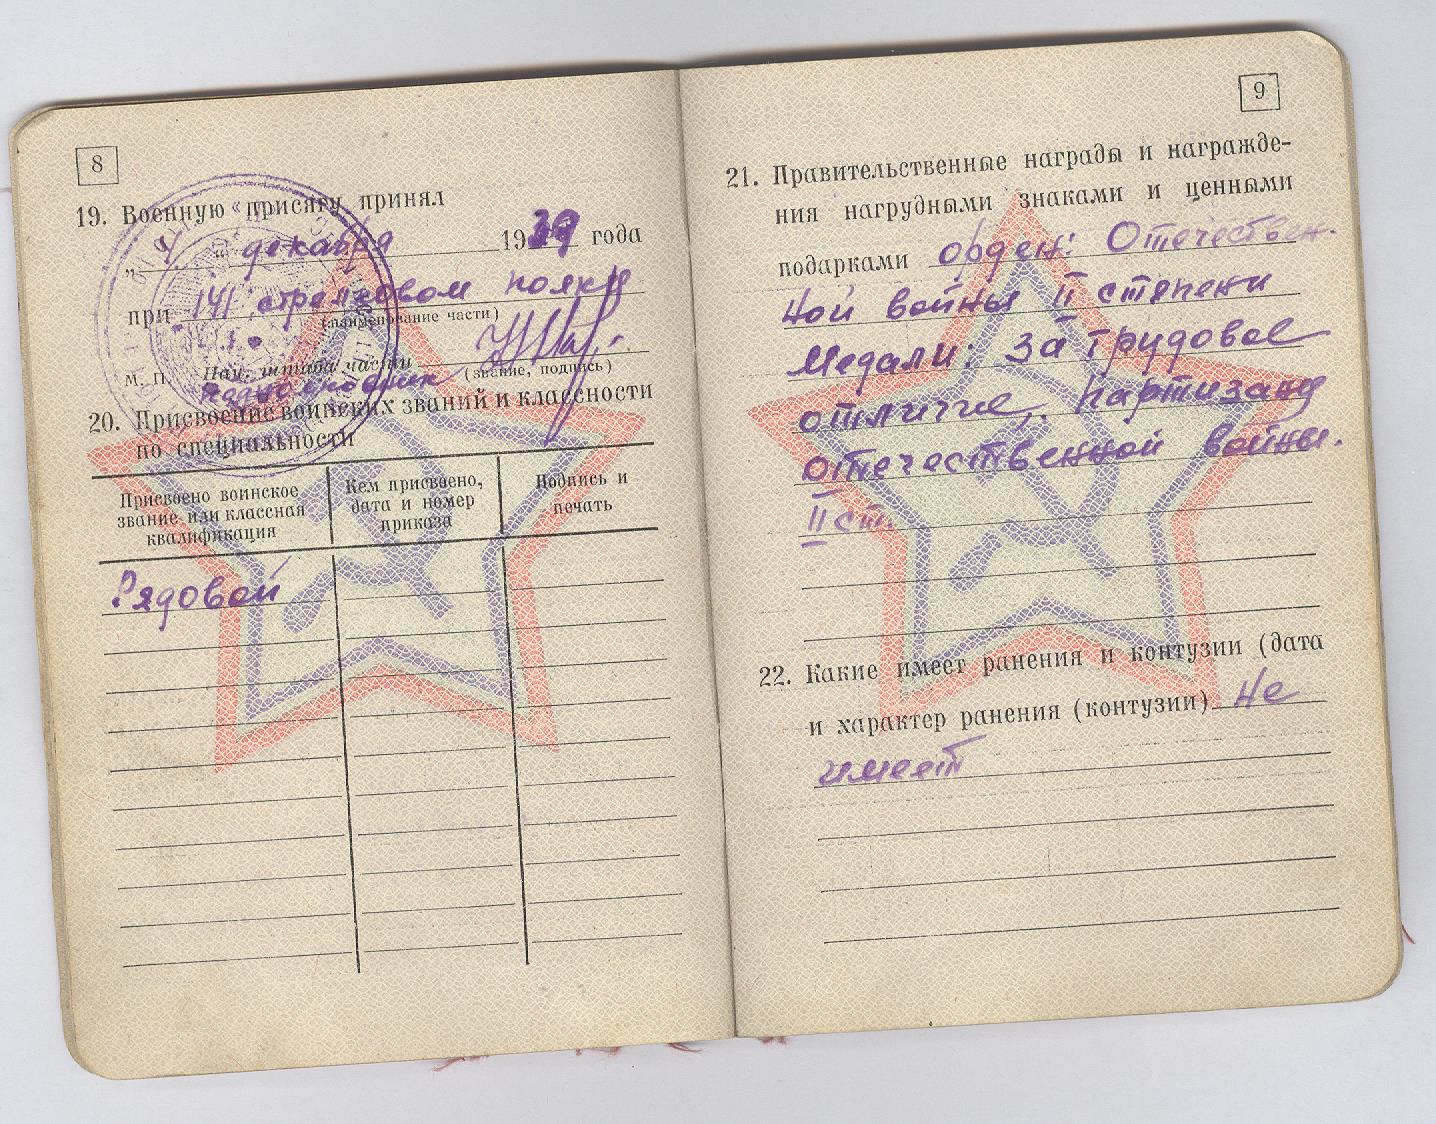 8
19. Военную присягу принял
„ 4 “ декабря 1939 года
при 141 стрелковом полку
(наименование части)
М. П. Нач. штаба части
(звание, подпись)
подполковник
20. Присвоение воинских званий и классности
по специальности
Присвоено воинское
звание или классная
квалификация
Кем присвоено,
дата и номер
приказа
Подпись и
печать
Рядовой
9
21. Правительственные награды и награжде-
ния нагрудными знаками и ценными
подарками орден: Отечествен-
ной войны II степени
Медали: За трудовое
отличие, партизану
отечественной войны.
II ст.
22. Какие имеет ранения и контузии (дата
и характер ранения (контузии) Не
имеет